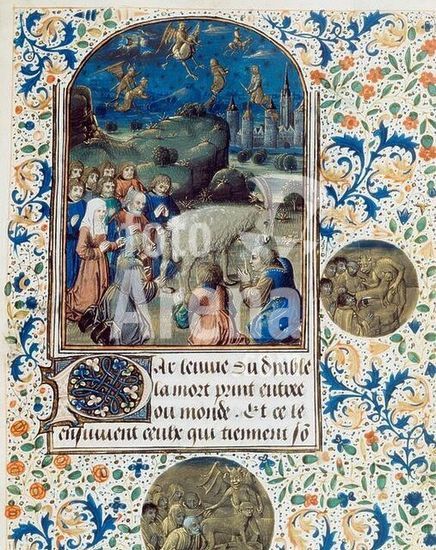 foto
Arena
PAr lenuie du dyable
la mort print entree
ou monde. Et ce le
ensuiuent ceulx qui tiennent so